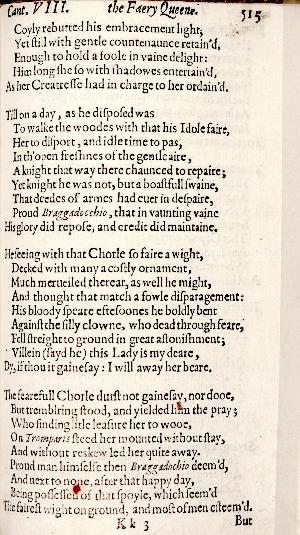 Cant. VIII. the Faery Queene. 515
Coyly rebutted his embracement light;
Yet still with gentle countenaunce retain'd,
Enough to hold a foole in vaine delight:
Him long she so with shadowes entertain'd,
As her Creatresse had in charge to her ordain'd.
Till on a day, as he disposed was
To walke the woodes with that his Idole faire,
Her to disport, and idle time to pas,
In th'open freshnes of the gentle aire,
A knight that way there chaunced to repaire;
Yet knight he was not, but a boastfull swaine,
That deedes of armes had euer in despaire,
Proud Braggadocchio, that in vaunting vaine
His glory did repose, and credit did maintaine.
He seeing with that Chorle so faire a wight,
Decked with many a costly ornament,
Much merueiled thereat, as well he might,
And thought that match a fowle disparagement:
His bloody speare eftesoones he boldly bent
Against the silly clowne, who dead through feare,
Fell streight to ground in great astonishment;
Villein (sayd he) this Lady is my deare,
Dy, if thou it gainesay: I will away her beare.
The fearefull Chorle durst not gainesay, nor dooe,
But trembling stood, and yielded him the pray;
Who finding litle leasure her to wooe,
On Tromparts steed her mounted without stay,
And without reskew led her quite away.
Proud man himselfe then Braggadochio deem'd,
And next to none, after that happy day,
Being possessed of that spoyle, which seem'd
The fairest wight on ground, and most of men esteem'd.
Kk 3 But